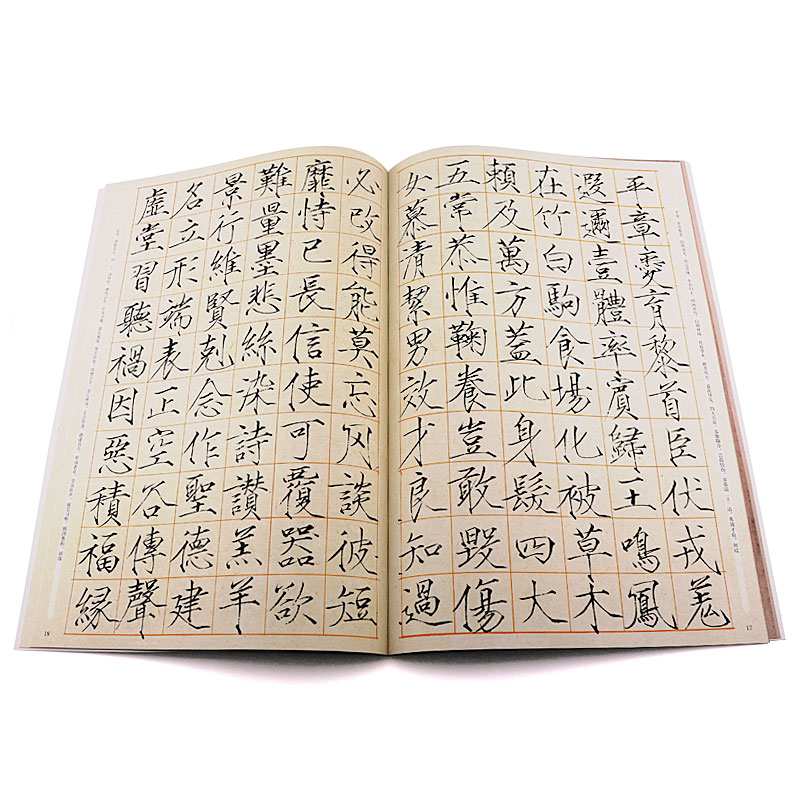 平章愛育黎首臣伏戎羌
遐邇壹體率賓歸王鳴鳳
在竹白駒食場化被草木
賴及萬方蓋此身髮四大
五常恭惟鞠養豈敢毀傷
女慕清絜男效才良知過
17
必改得能莫忘罔談彼短
靡恃己長信使可覆器欲
難量墨悲絲染詩讚羔羊
景行維賢剋念作聖德建
名立形端表正空谷傳聲
虛堂習聽禍因惡積福緣
18